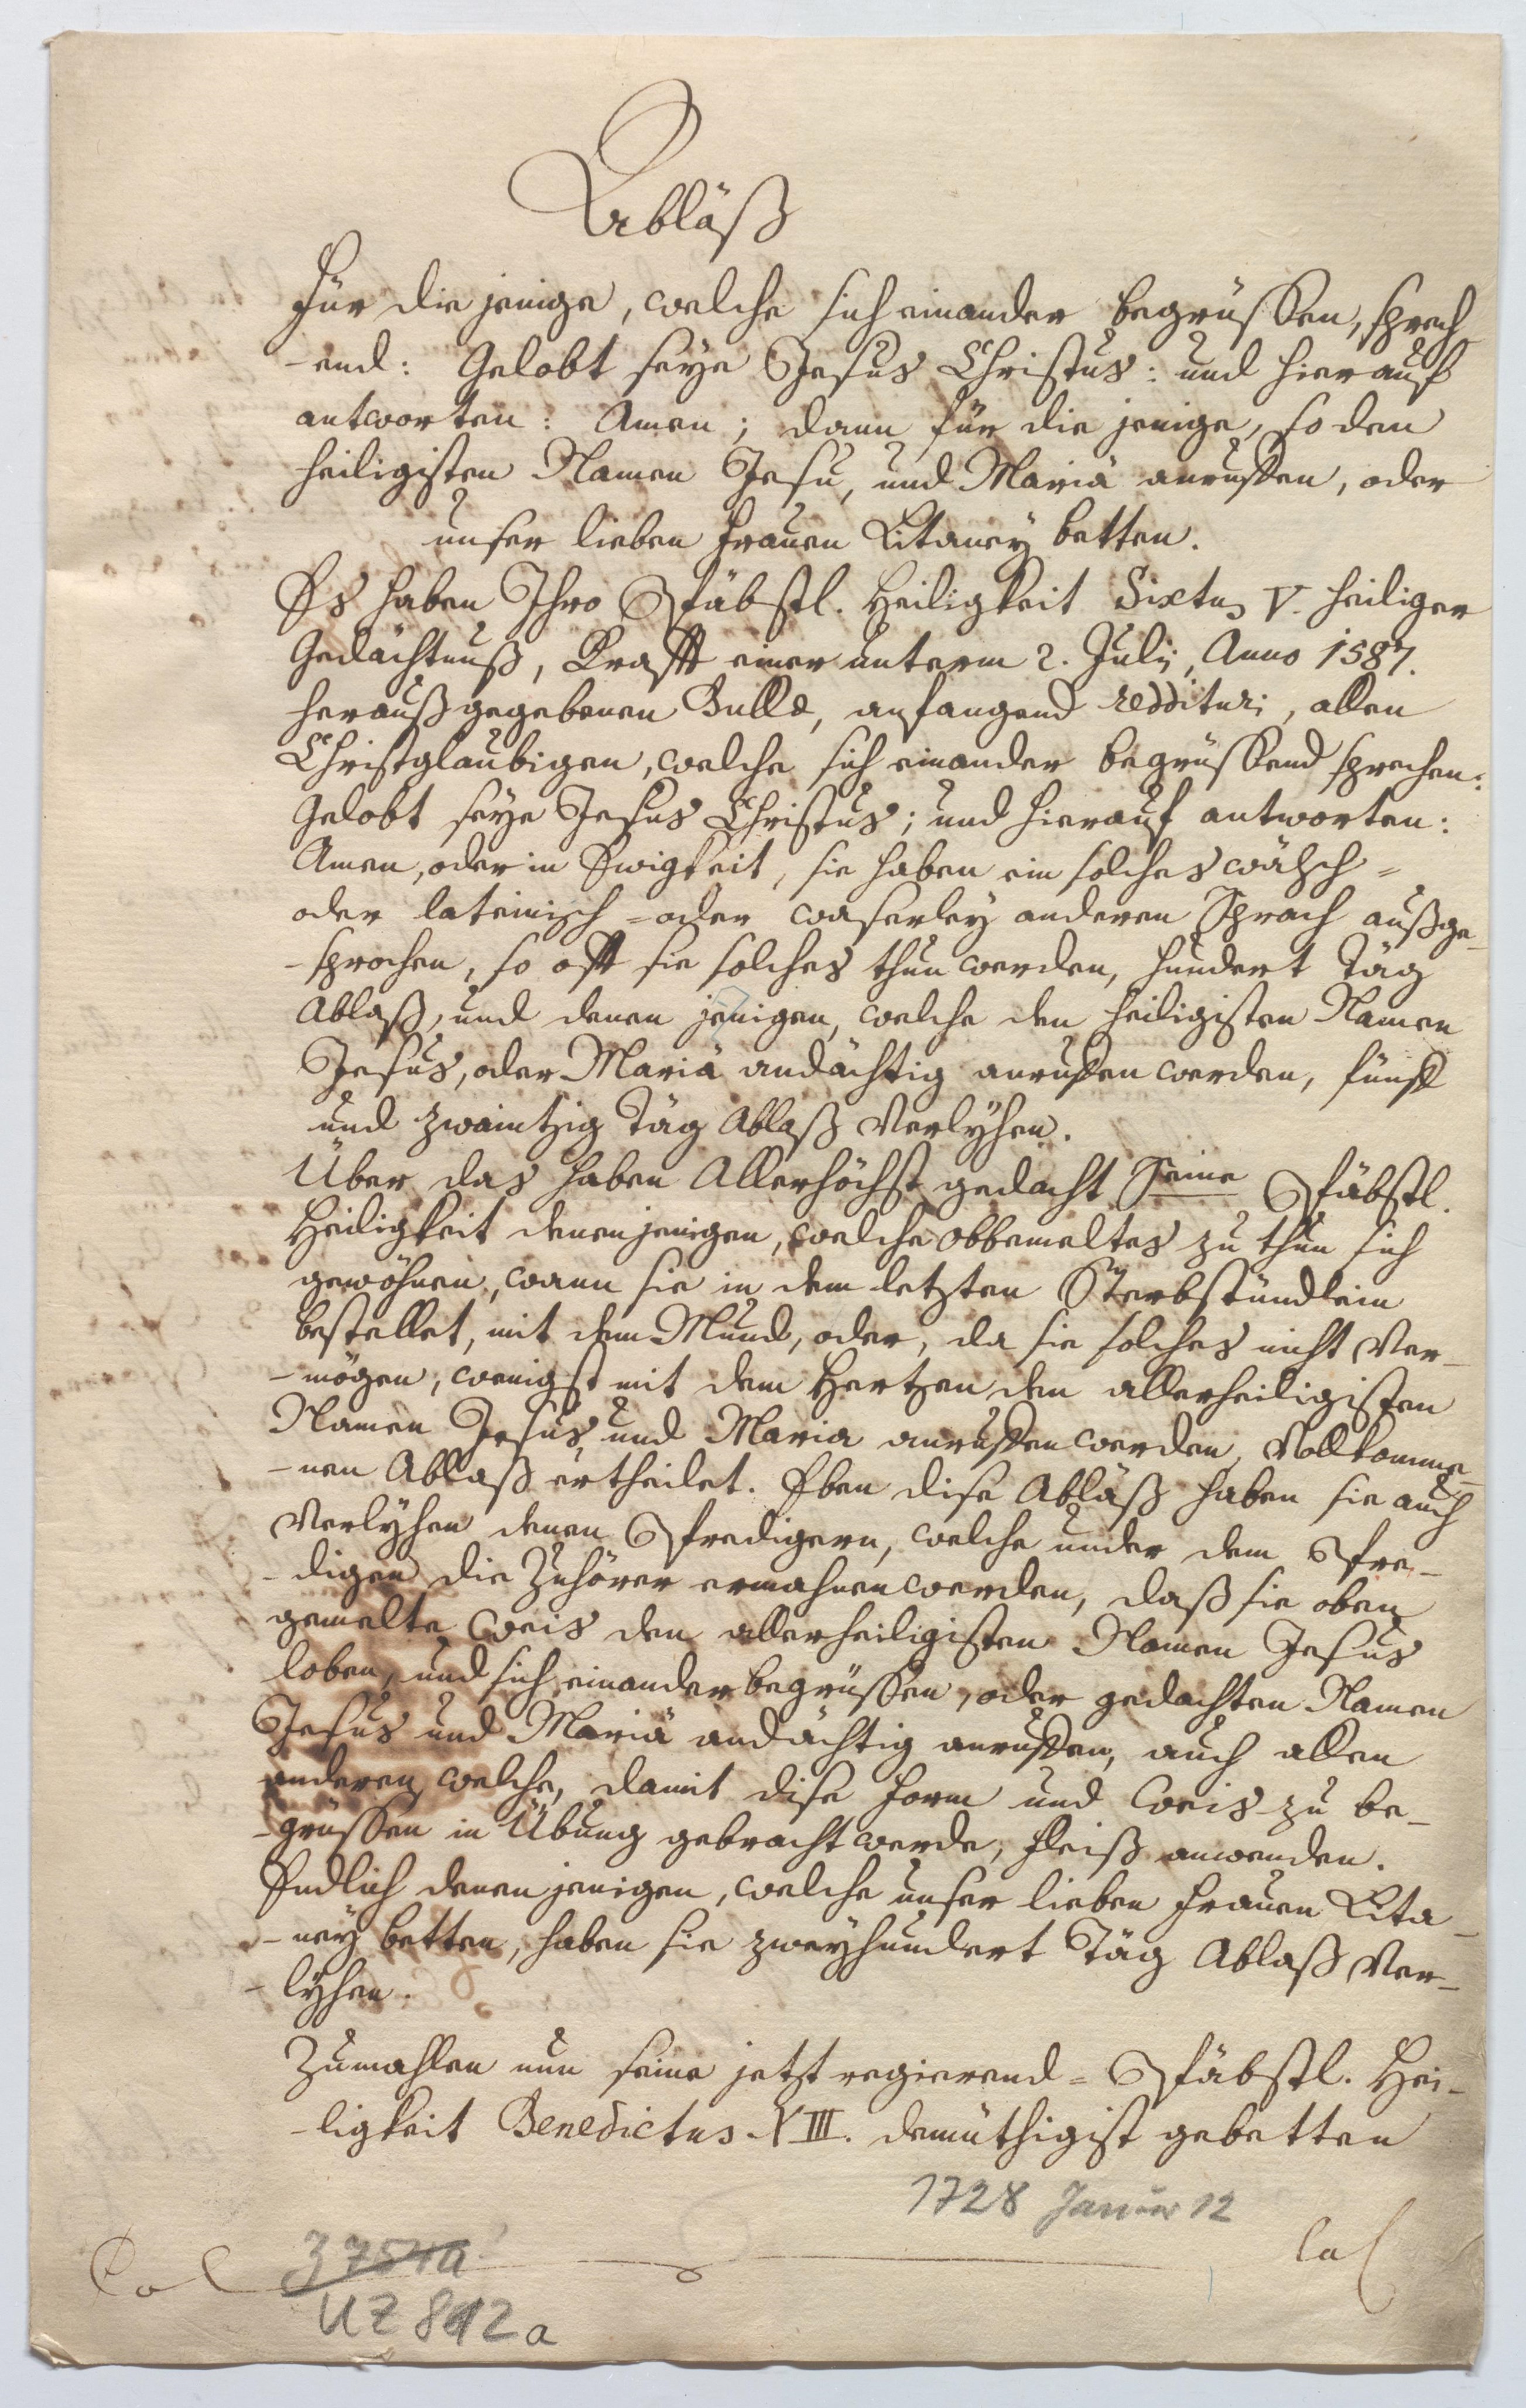 Abläß
Für die jenige, welche sich einander begrüssen, sprech
-end: Gelobt seye Jesus Christus: und hierauf
antworten: Amen; dann für die jenige, so den
heiligisten Namen Jesu, und Mariä anruffen, oder
unser lieben Frauen Litaney betten.
Es haben Ihro Päbstl. Heiligkeit Sixtus V. heiliger
Gedächtnuß, Krafft einer unterm 2. Julij, Anno 1587.
heraußgegebenen Bulle, anfangend reddituri, allen
Christglaubigen, welche sich einander begrüssend sprechen:
Gelobt seye Jesus Christus; und hierauf antworten:
Amen, oder in Ewigkeit, sie haben ein solches wälsch=
oder lateinisch=oder waserley anderen Sprach außge-
-sprochen, so offt sie solches thun werden, hundert Täg
Ablaß, und denen jenigen, welche den heiligisten Namen
Jesus, oder Mariä andächtig anruffen werden, fünff
und zwaintzig Täg Ablaß verlyhen.
Über das haben Allerhöchst gedacht Seine Päbstl.
Heiligkeit denenjenigen, welche obbemeltes zu thun sich
gewöhnen, wann sie in dem letzten Sterbstündlein
bestellet, mit dem Mund, oder, da sie solches nicht ver-
-mögen, wenigst mit dem Hertzen den allerheiligisten
Namen Jesus und Maria anruffen werden, vollkomme-
-nen Ablaß ertheilet. Eben dise Abläß haben sie auch
verlyhen denen Predigern, welche under dem Pre-
-digen die Zuhörer ermahnen werden, daß sie oben
gemelte weis den allerheiligisten Namen Jesus
loben, und sich einander begrüssen, oder gedachten Namen
Jesus und Mariä andächtig anruffen, auch allen
anderen, welche, damit dise form und weis zu be-
-grüssen in Übung gebracht werde, fleiß anwenden.
Endlich denenjenigen, welche unser lieben Frauen Lita-
-ney betten, haben sie zweyhundert Täg Ablaß ver-
-lyhen.
Zumahlen nun seine jetzt regierend= Päbstl. Hei-
-ligkeit Benedictus XIII. demüthigist gebetten
1728 Januar 12
UZ 812a